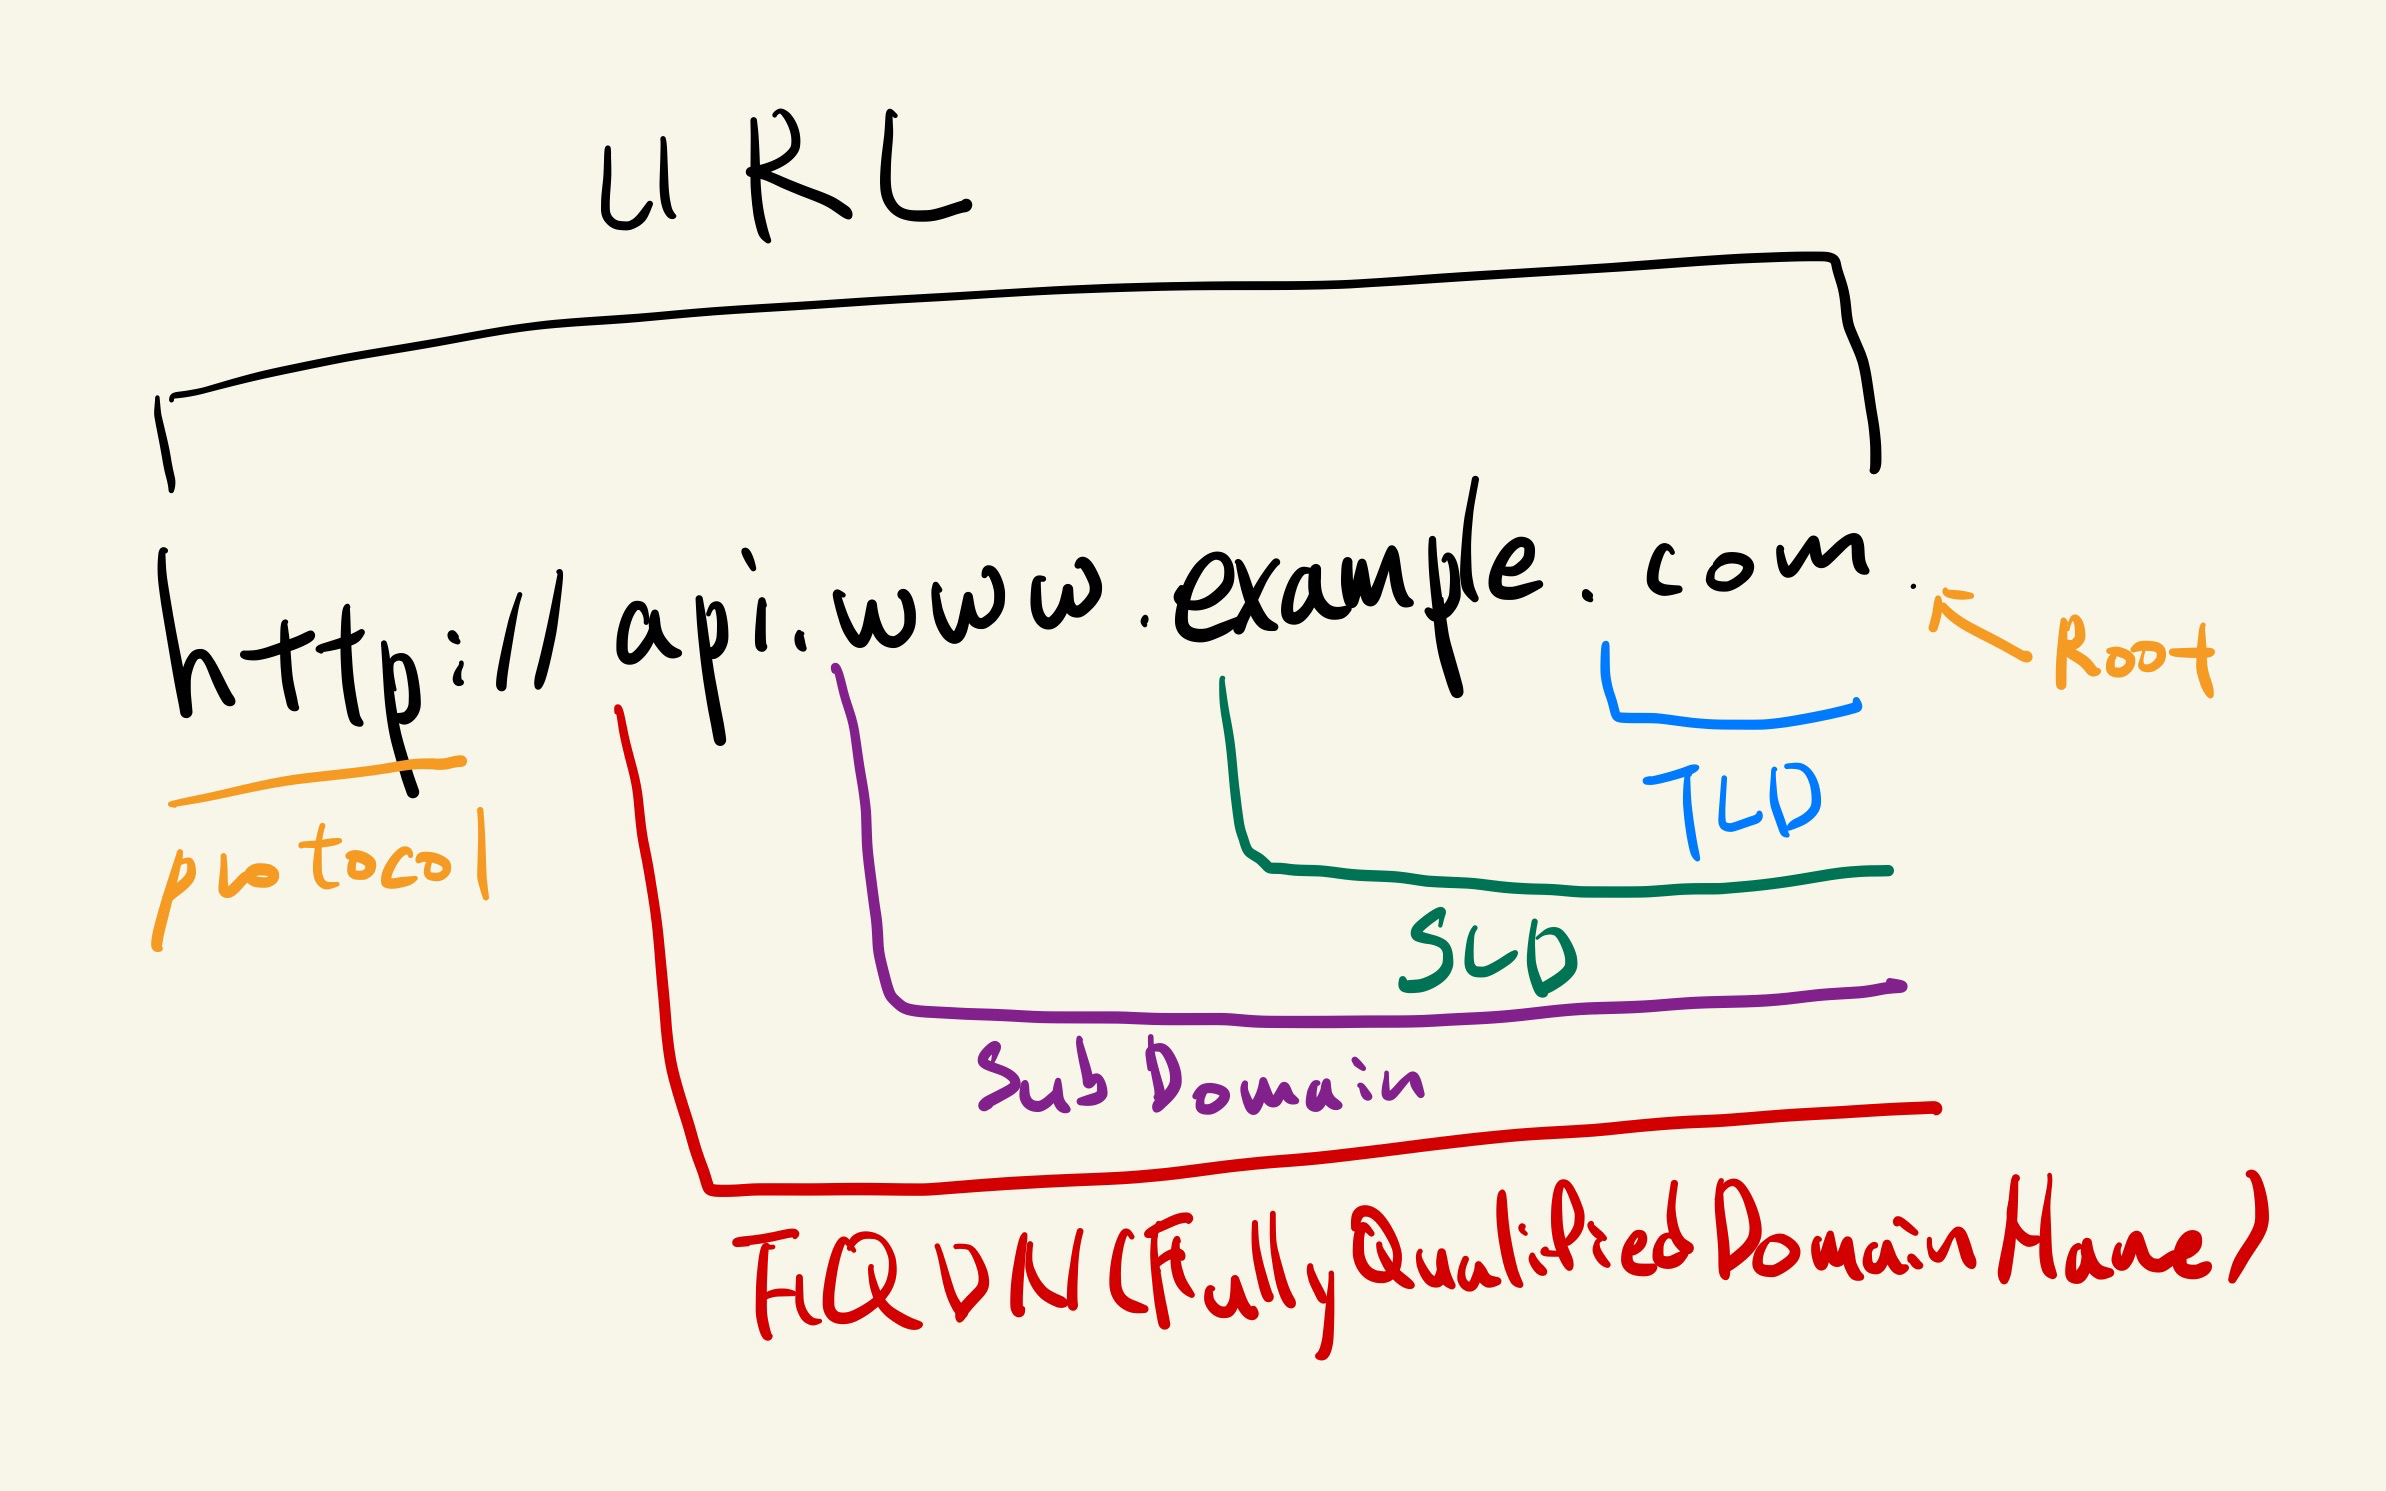 URL
http://api.www.example.com.
Root
protocol
TLD
SLD
Sub Domain
FQDN (Fully Qualified Domain Name)